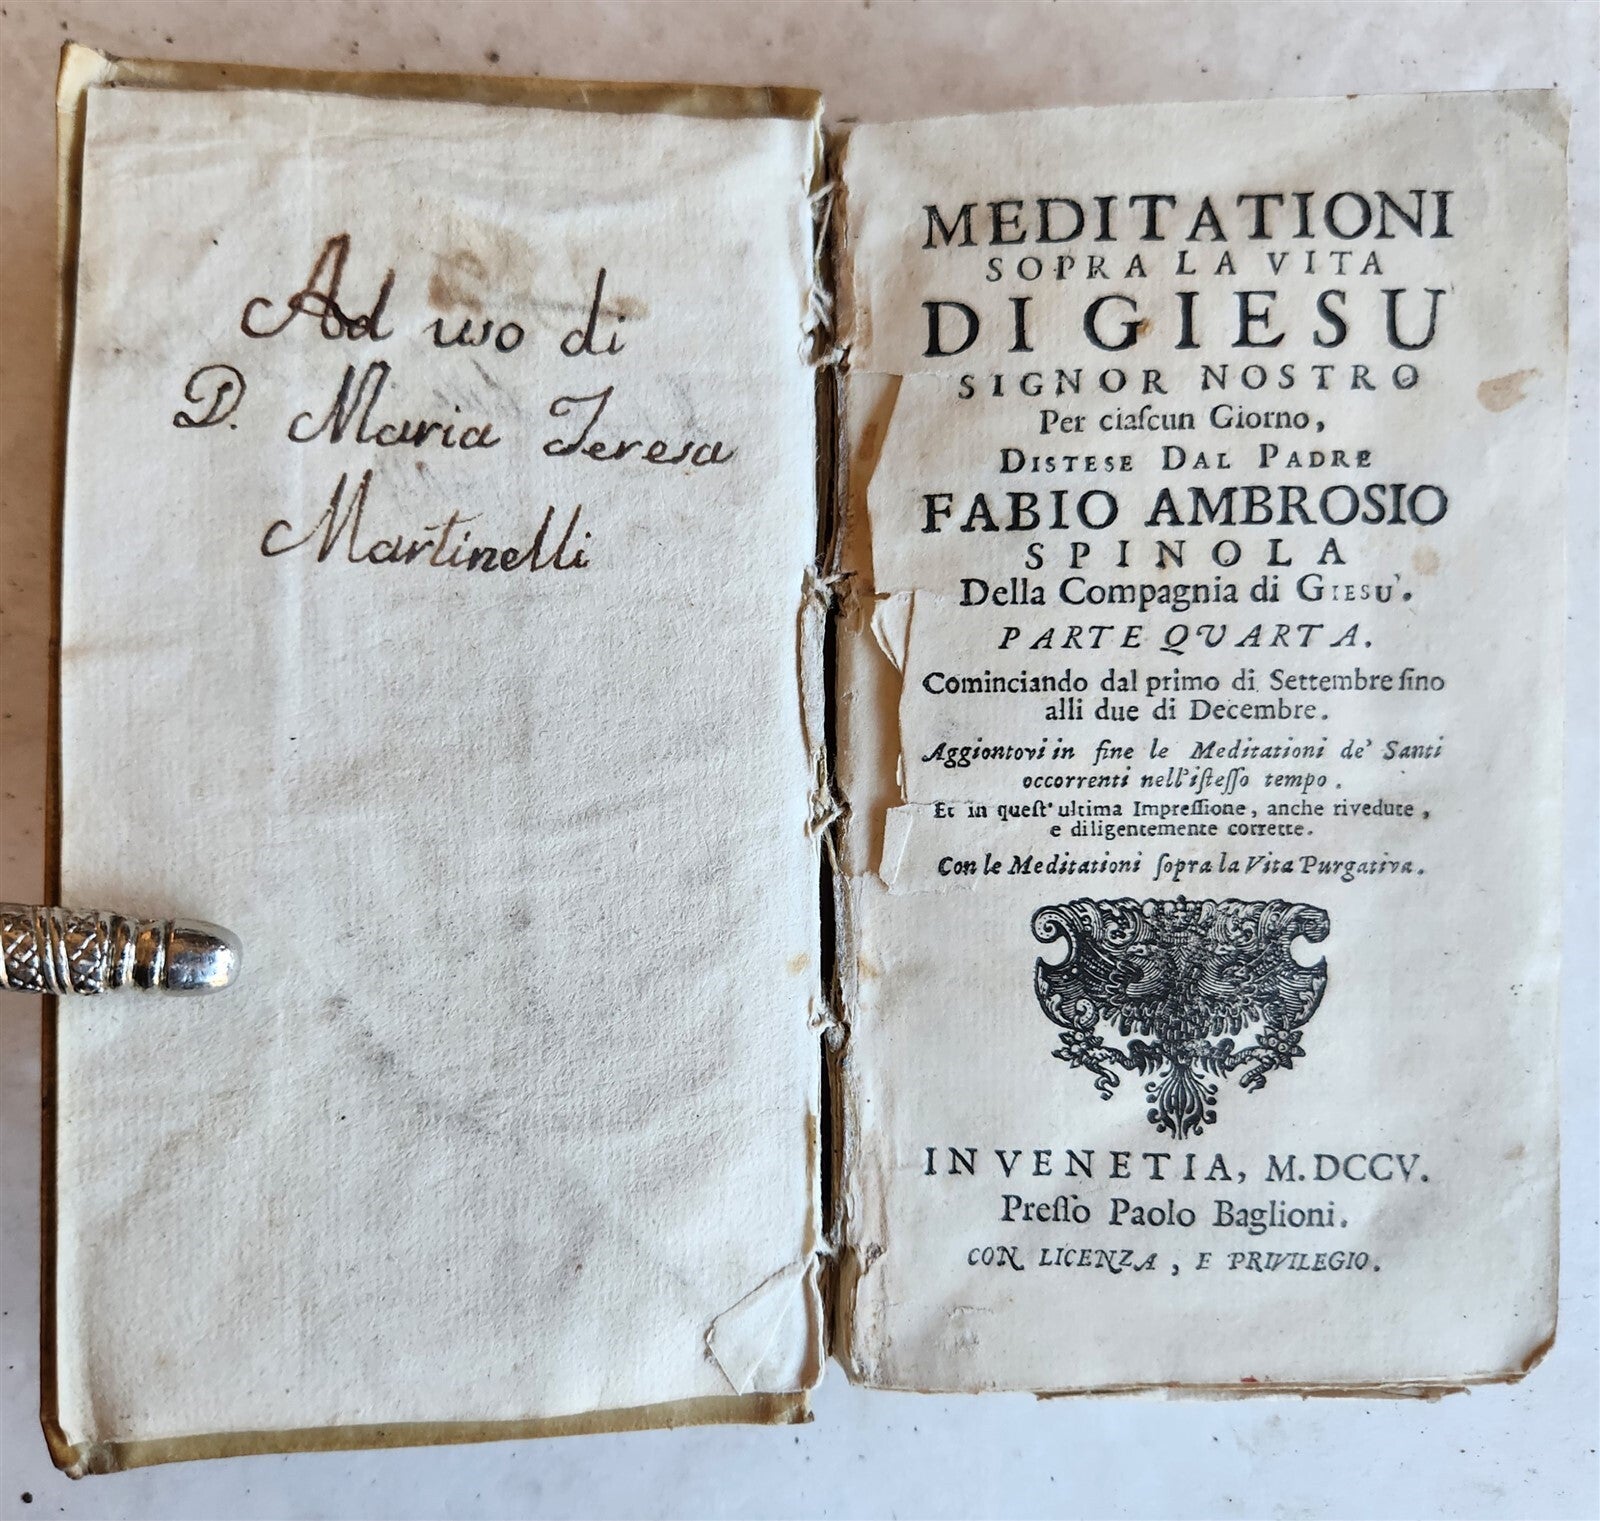 Ad uso di
D. Maria Teresa
Martinelli
MEDITATIONI
SOPRA LA VITA
DI GIESU
SIGNOR NOSTRO
Per ciaſcun Giorno,
DISTESE DAL PADRE
FABIO AMBROSIO
SPINOLA
Della Compagnia di GIESU'.
PARTE QVARTA.
Cominciando dal primo di Settembre ſino
alli due di Decembre.
Aggiontovi in fine le Meditationi de' Santi
occorrenti nell'iſteſſo tempo.
Et in queſt' ultima Impreſſione, anche rivedute,
e diligentemente corrette.
Con le Meditationi ſopra la Vita Purgativa.
IN VENETIA, M. DCCV.
Preſſo Paolo Baglioni.
CON LICENZA, E PRIVILEGIO.